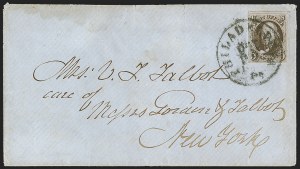 PHILAD
Pa
Mrs. V. F. Talbot
care of
Messrs Jordan & Talbot
New York